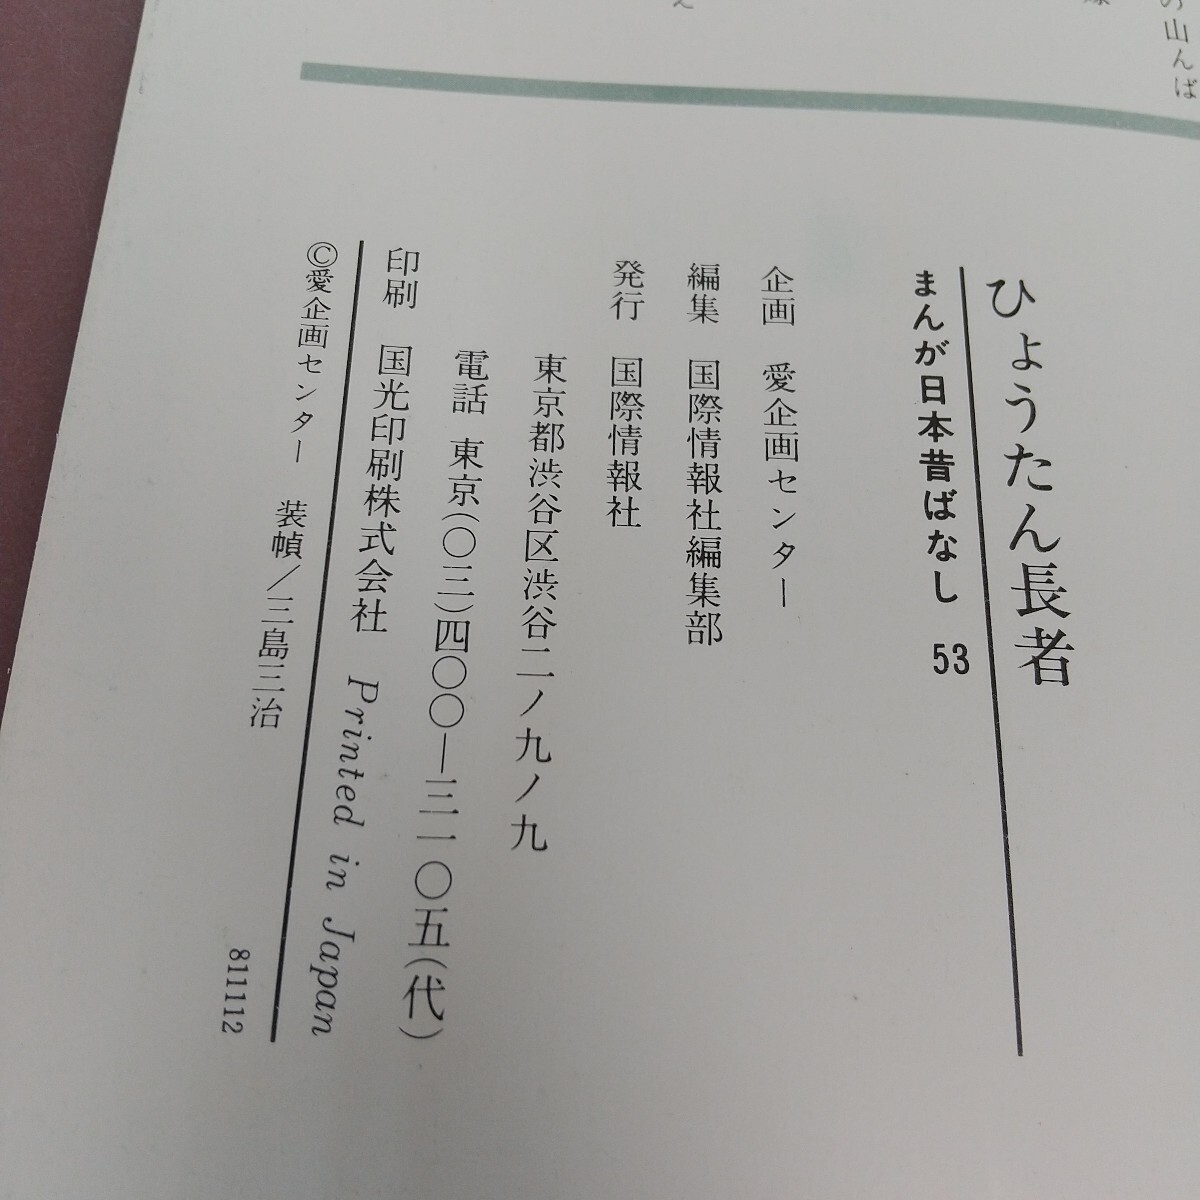 の山んば
え
ひょうたん長者
まんが日本昔ばなし 53
企画 愛企画センター
編集 国際情報社編集部
発行 国際情報社
東京都渋谷区渋谷二ノ九ノ九
電話 東京(〇三)四〇〇―三一〇五(代)
印刷 国光印刷株式会社 Printed in Japan
©愛企画センター 装幀/三島三治
811112